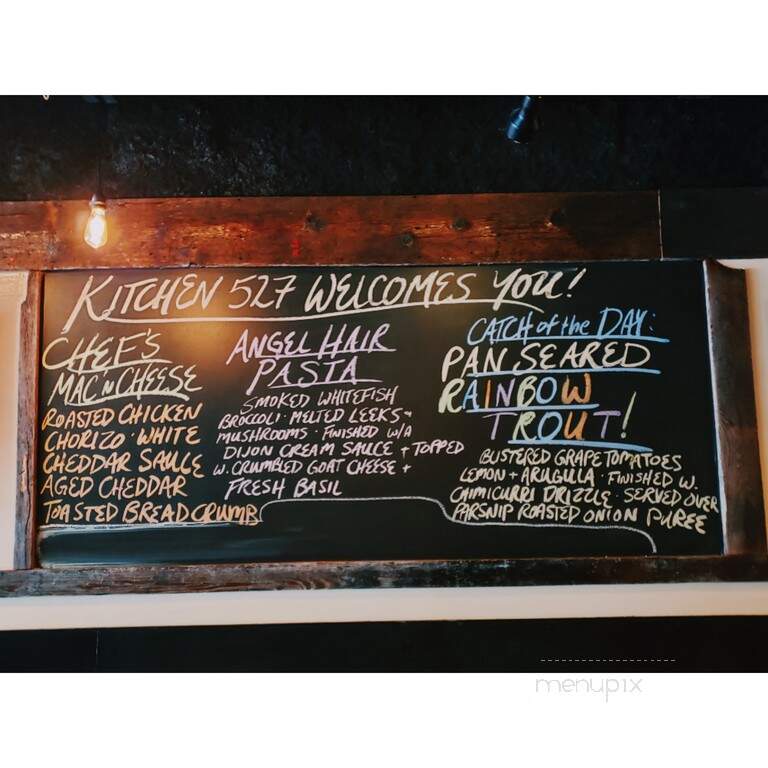 KITCHEN 527 WELCOMES YOU!
CHEF'S
MAC 'n CHEESE
ROASTED CHICKEN
CHORIZO · WHITE
CHEDDAR SAUCE
AGED CHEDDAR
TOASTED BREADCRUMB
ANGEL HAIR
PASTA
SMOKED WHITEFISH
BROCCOLI · MELTED LEEKS +
MUSHROOMS · FINISHED W/A
DIJON CREAM SAUCE + TOPPED
W. CRUMBLED GOAT CHEESE +
FRESH BASIL
CATCH of the DAY:
PAN SEARED
RAINBOW
TROUT!
BUSTERED GRAPE TOMATOES
LEMON + ARUGULA · FINISHED W.
CHIMICURRI DRIZZLE · SERVED OVER
PARSNIP ROASTED ONION PUREE
menupix